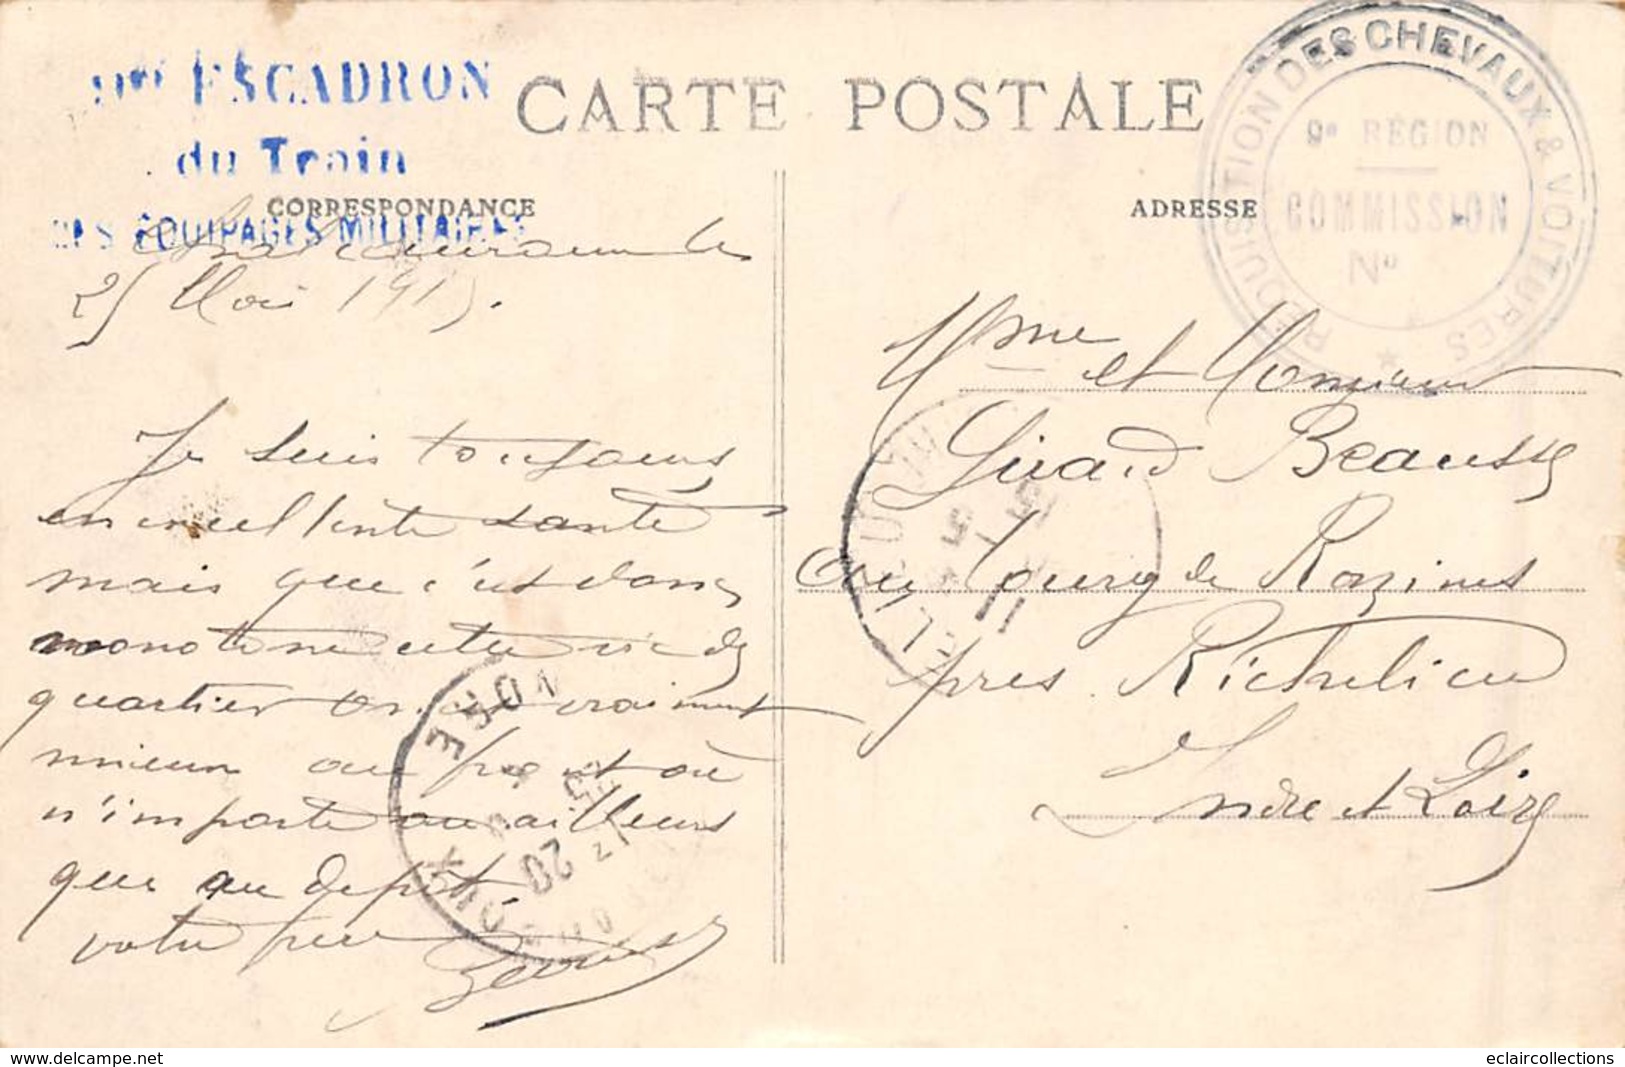 ESCADRON
du Train
DES ÉQUIPAGES MILITAIRES
CARTE POSTALE
CORRESPONDANCE
ADRESSE
RÉQUISITION DES CHEVAUX & VOITURES
9e RÉGION
COMMISSION
No
Châteauroux le
25 Mai 1915.
Je suis toujours
en excellente santé
mais que c'est donc
monotone cette vie de
quartier on est vraiment
mieux au front où
n'importe où ailleurs
que au dépôt.
votre frère
Mme et Monsieur
Girard Beausse
Au bourg de Razines
près Richelieu
Indre et Loire
delcampe.net
eclaircollections